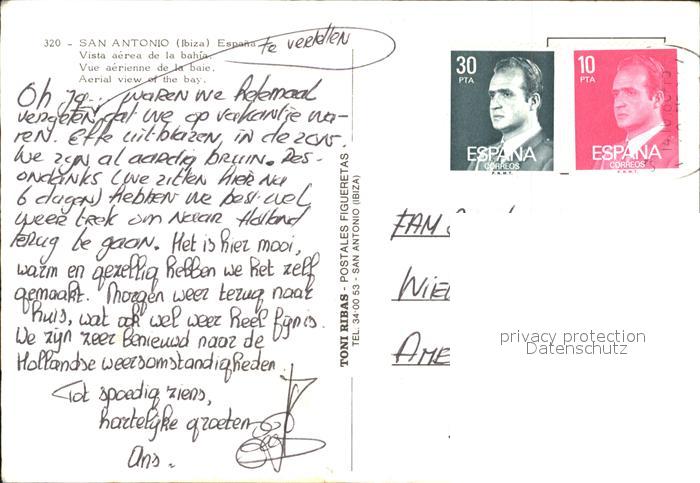 320 - SAN ANTONIO (Ibiza) España
Vista aérea de la bahía.
Vue aérienne de la baie.
Aerial view of the bay.
te vertellen
Oh ja, waren we helemaal
vergeten dat we op vakantie wa-
ren. Effe uitblazen, in de zon.
We zijn al aardig bruin. Des-
ondanks (we zitten hier na
6 dagen) hebben we best wel
weer trek om naar Holland
terug te gaan. Het is hier mooi,
warm en gezellig hebben we het zelf
gemaakt. Morgen weer terug naar
huis, wat ook wel weer heel fijn is.
We zijn zeer benieuwd naar de
Hollandse weersomstandigheden.
Tot spoedig ziens,
hartelijke groeten
Ans.
TONI RIBAS - POSTALES FIGUERETAS
TEL. 34-00-53 - SAN ANTONIO (IBIZA)
30
PTA
ESPAÑA
CORREOS
F.N.M.T.
10
PTA
ESPAÑA
CORREOS
F.N.M.T.
FAM
privacy protection
Datenschutz